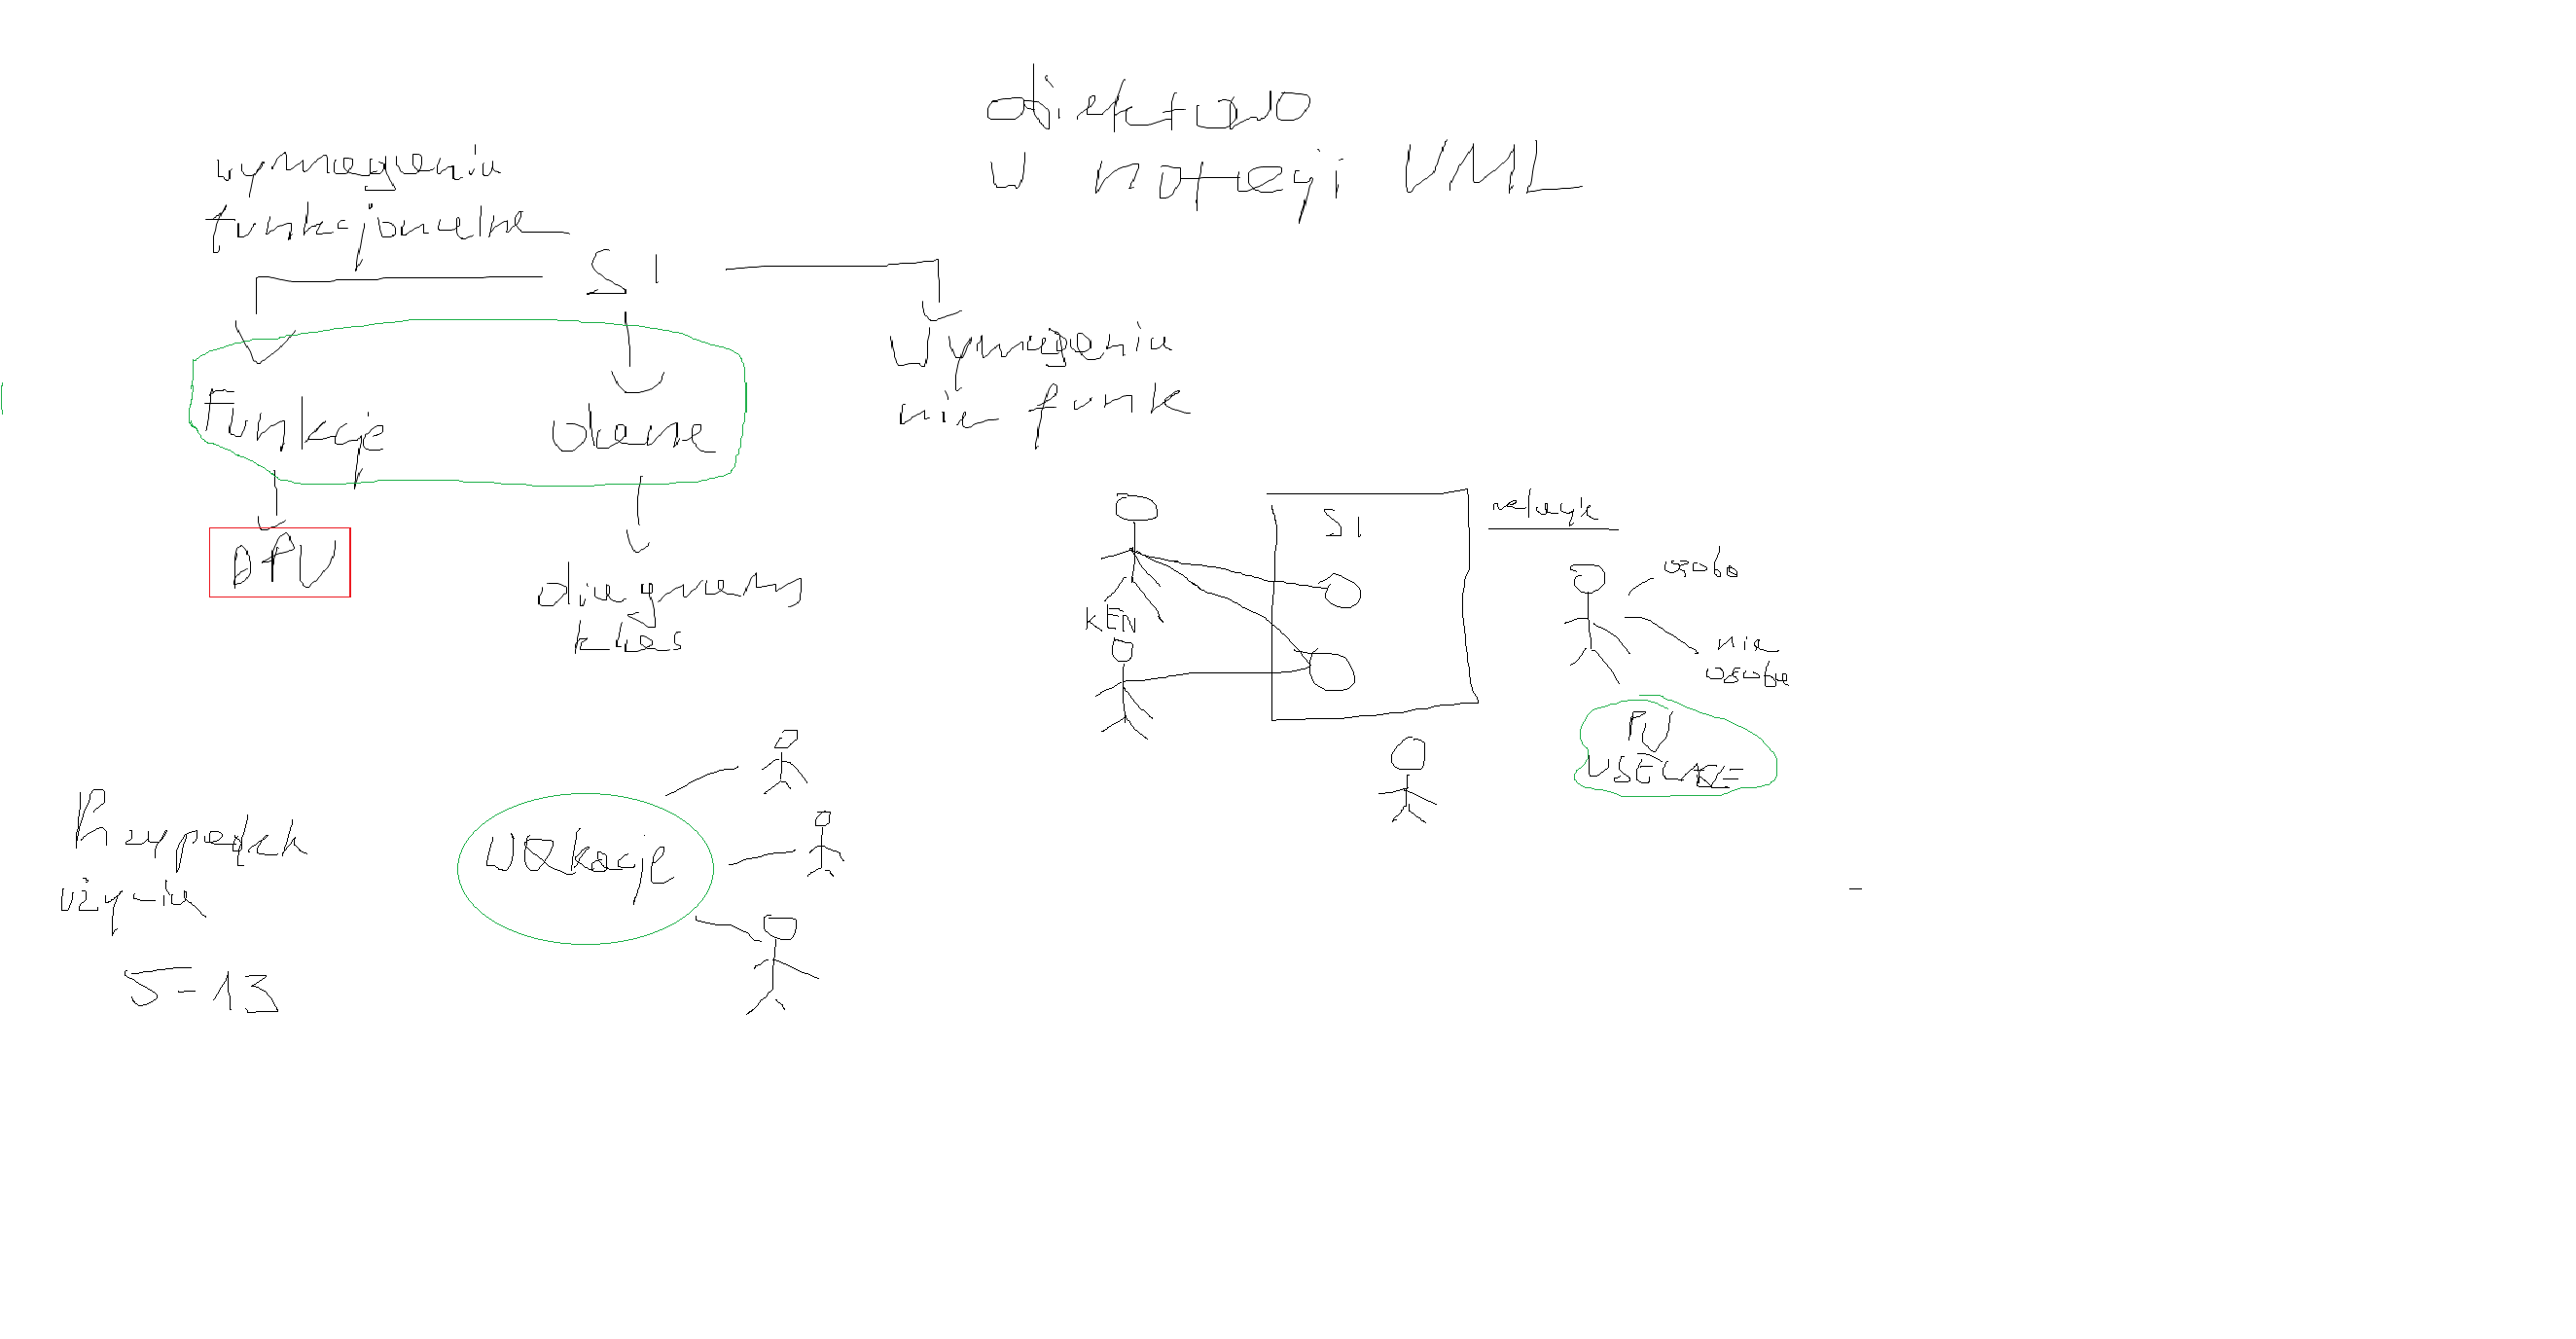 obiektowo
w notacji UML
wymagania
funkcjonalne
SI
Wymagania
nie funk
Funkcje
dane
DPU
diagram
klas
SI
relacje
osoba
nie
osoba
KEN
PU
USECASE
Przypadek
użycia
5-13